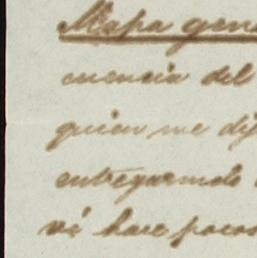 Mapa gene
cuencia del
quien me dij
entregarmelo
vi hace pocos